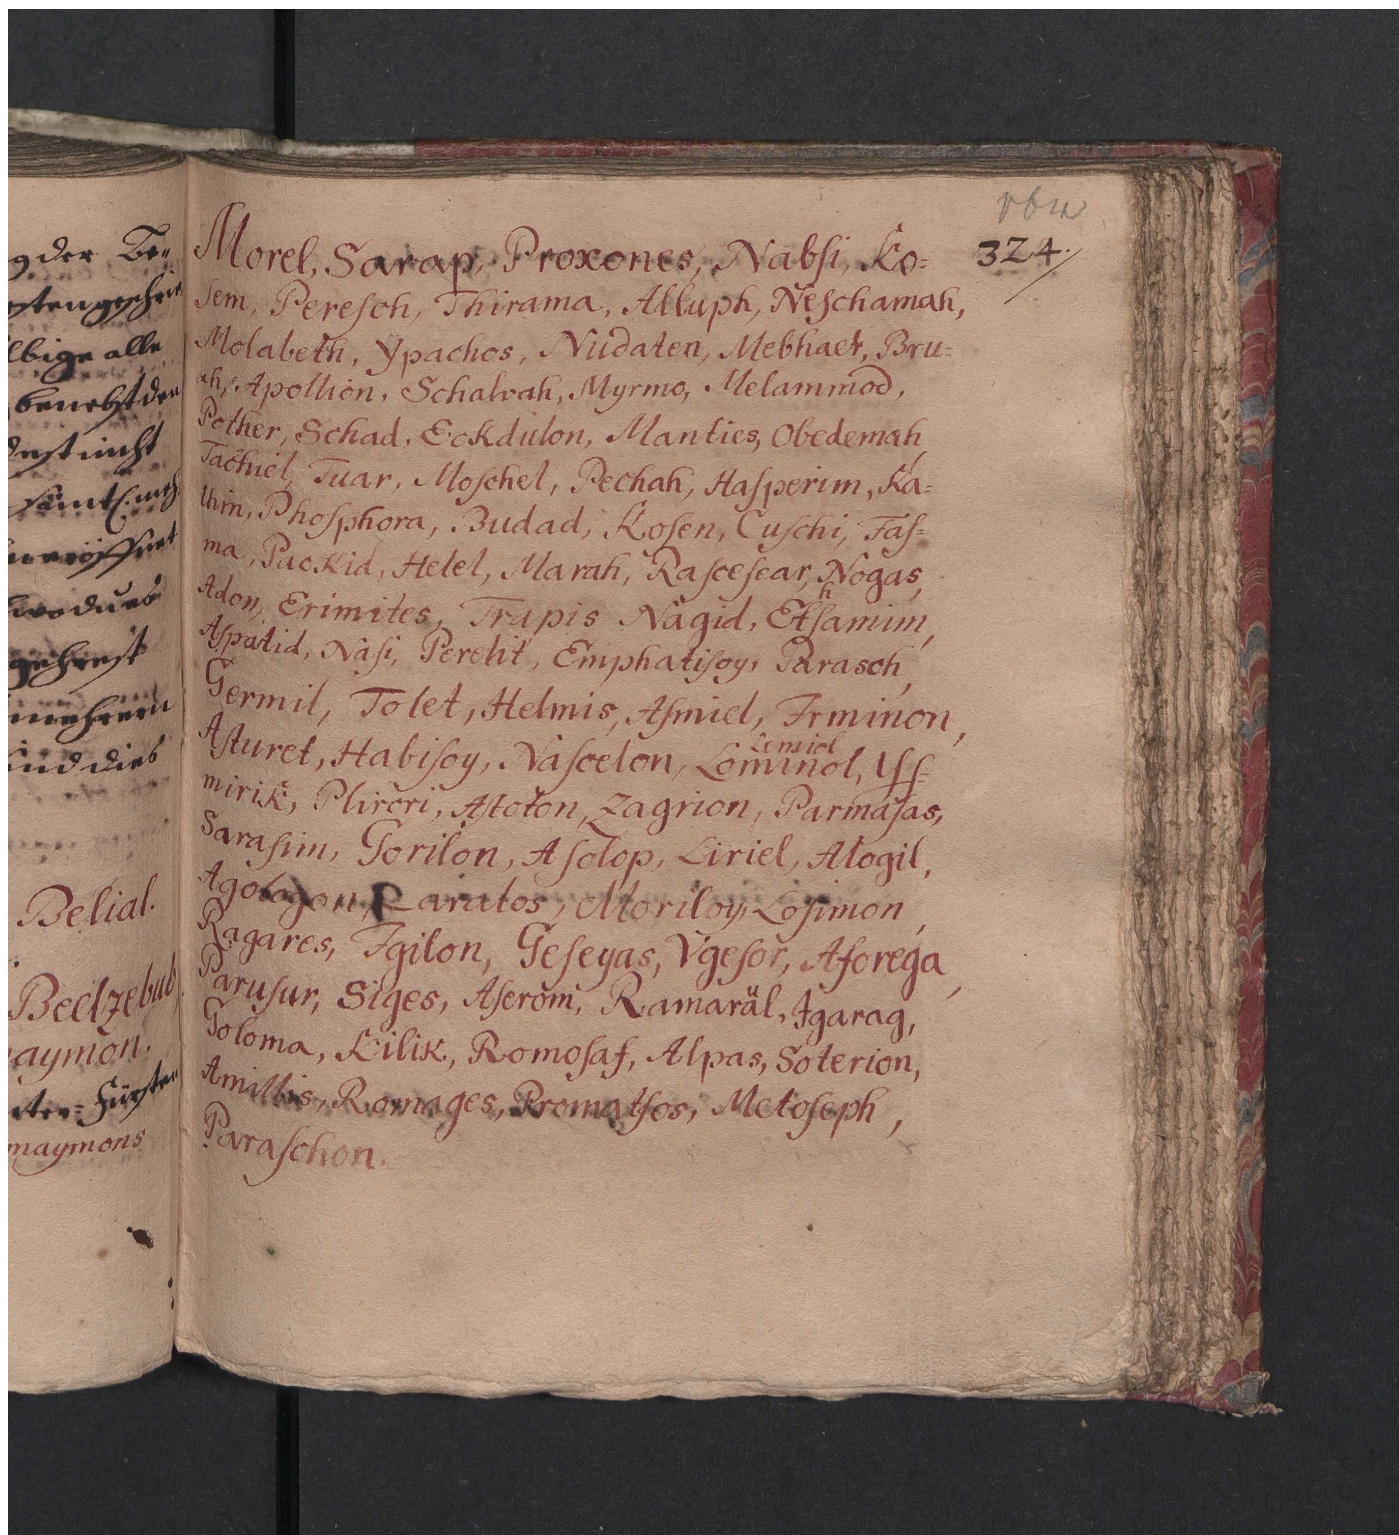 g der Be=
lbige alle
benebst den
nicht
mehrern
und dies
Belial.
Beelzebub
aymon.
Fürsten
maymons
324.
Morel, Sarap, Proxones, Nabſi, Ko=
sem, Pereſch, Thirama, Alluph, Neſchamah,
Molabeth, Ypachos, Nudaten, Mebhaet, Bru=
ah, Apollion, Schalvah, Myrmo, Melammod,
Pother, Schad, Eckdulon, Manties, Obedemah,
Tachiel, Tuar, Moſchel, Pechah, Haſperim, Ka=
thim, Phoſphora, Budad, Koſen, Cuſchi, Faſ=
ma, Packid, Helel, Marah, Raſceſear, Nogas,
Adon, Erimites, Trapis Nagid, Ethſamim,
Aſpatid, Naſi, Perelit, Emphatiſoy, Parasch,
Germil, Tolet, Helmis, Aſmiel, Irminon,
Aſturet, Habiſoy, Naſcelon, Lominol, Yſſ=
Lemiol
mirik, Plirori, Aſloton, Zagrion, Parmaſas,
Saraſim, Gorilon, Aſolop, Liriel, Alogil,
Agologon, Laralos, Moriloy, Loſimon,
Ragares, Igilon, Geſeyas, Vgeſor, Aſorega,
Paruſur, Siges, Aſerom, Ramaräl, Jgarag,
Goloma, Kilik, Romoſaf, Alpas, Soterion,
Amillis, Romages, Promatſos, Metoſeph,
Paraſchon.